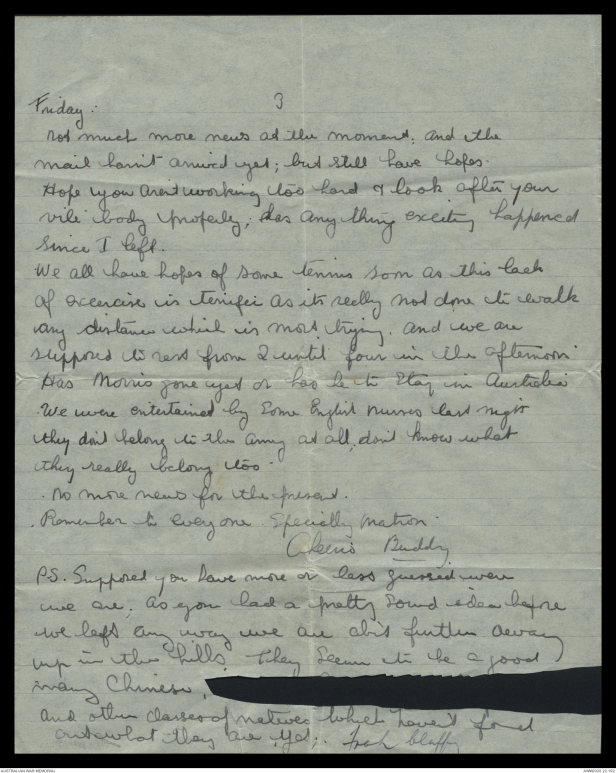 3
Friday:
not much more news at the moment, and the
mail hasn't arrived yet; but still have hopes.
Hope you aren't working too hard & look after your
vile body properly; has any thing exciting happened
since I left.
We all have hopes of some tennis soon as this lack
of excercise is terrific as its really not done to walk
any distance which is most trying, and we are
supposed to rest from 2 until four in the afternoon
Has Morris gone yet or has he to stay in Australia
We were entertained by some English nurses last night
they don't belong to the army at all, don't know what
they really belong too.
. no more news for the present.
. Remember to everyone. Specially Matron.
Cheerio Buddy
P.S. Supposed you have more or less guessed were
we are, as you had a pretty sound idea before
we left any way we are abit further away
up in the hills. They seem to be a good
many Chinese,
and other classes of natives which haven't found
out what they are, yet;.
AUSTRALIAN WAR MEMORIAL